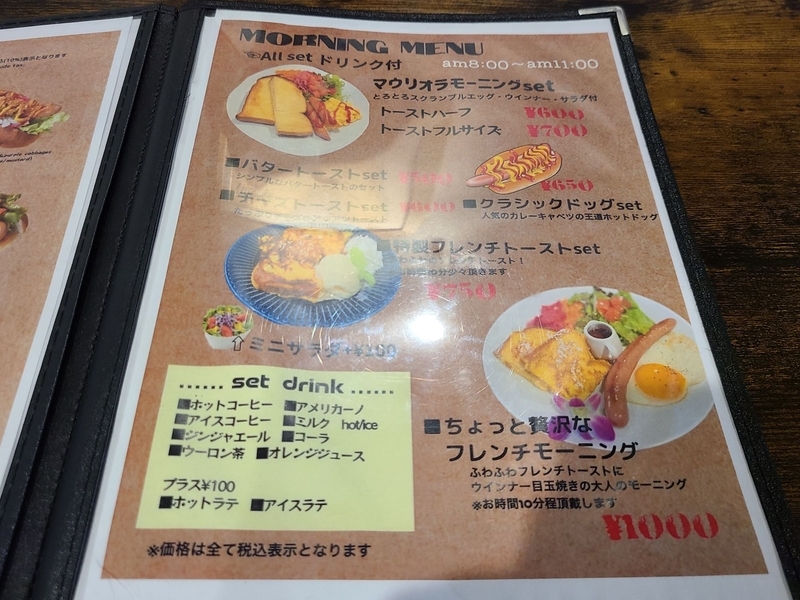 (10%)表示となります
MORNING MENU
All set ドリンク付
am8:00~am11:00
マウリオラモーニングset
とろとろスクランブルエッグ・ウインナー・サラダ付
トーストハーフ ¥600
トーストフルサイズ ¥700
■バタートーストset
シンプルなバタートーストのセット
¥650
■クラシックドッグset
人気のカレーキャベツの王道ホットドッグ
特製フレンチトーストset
¥750
ミニサラダ+¥100
...... set drink ......
■ホットコーヒー ■アメリカーノ
■アイスコーヒー ■ミルク hot/ice
■ジンジャエール ■コーラ
■ウーロン茶 ■オレンジジュース
プラス¥100
■ホットラテ ■アイスラテ
■ちょっと贅沢な
フレンチモーニング
ふわふわフレンチトーストに
ウインナー目玉焼きの大人のモーニング
※お時間10分程頂戴します
¥1000
※価格は全て税込表示となります